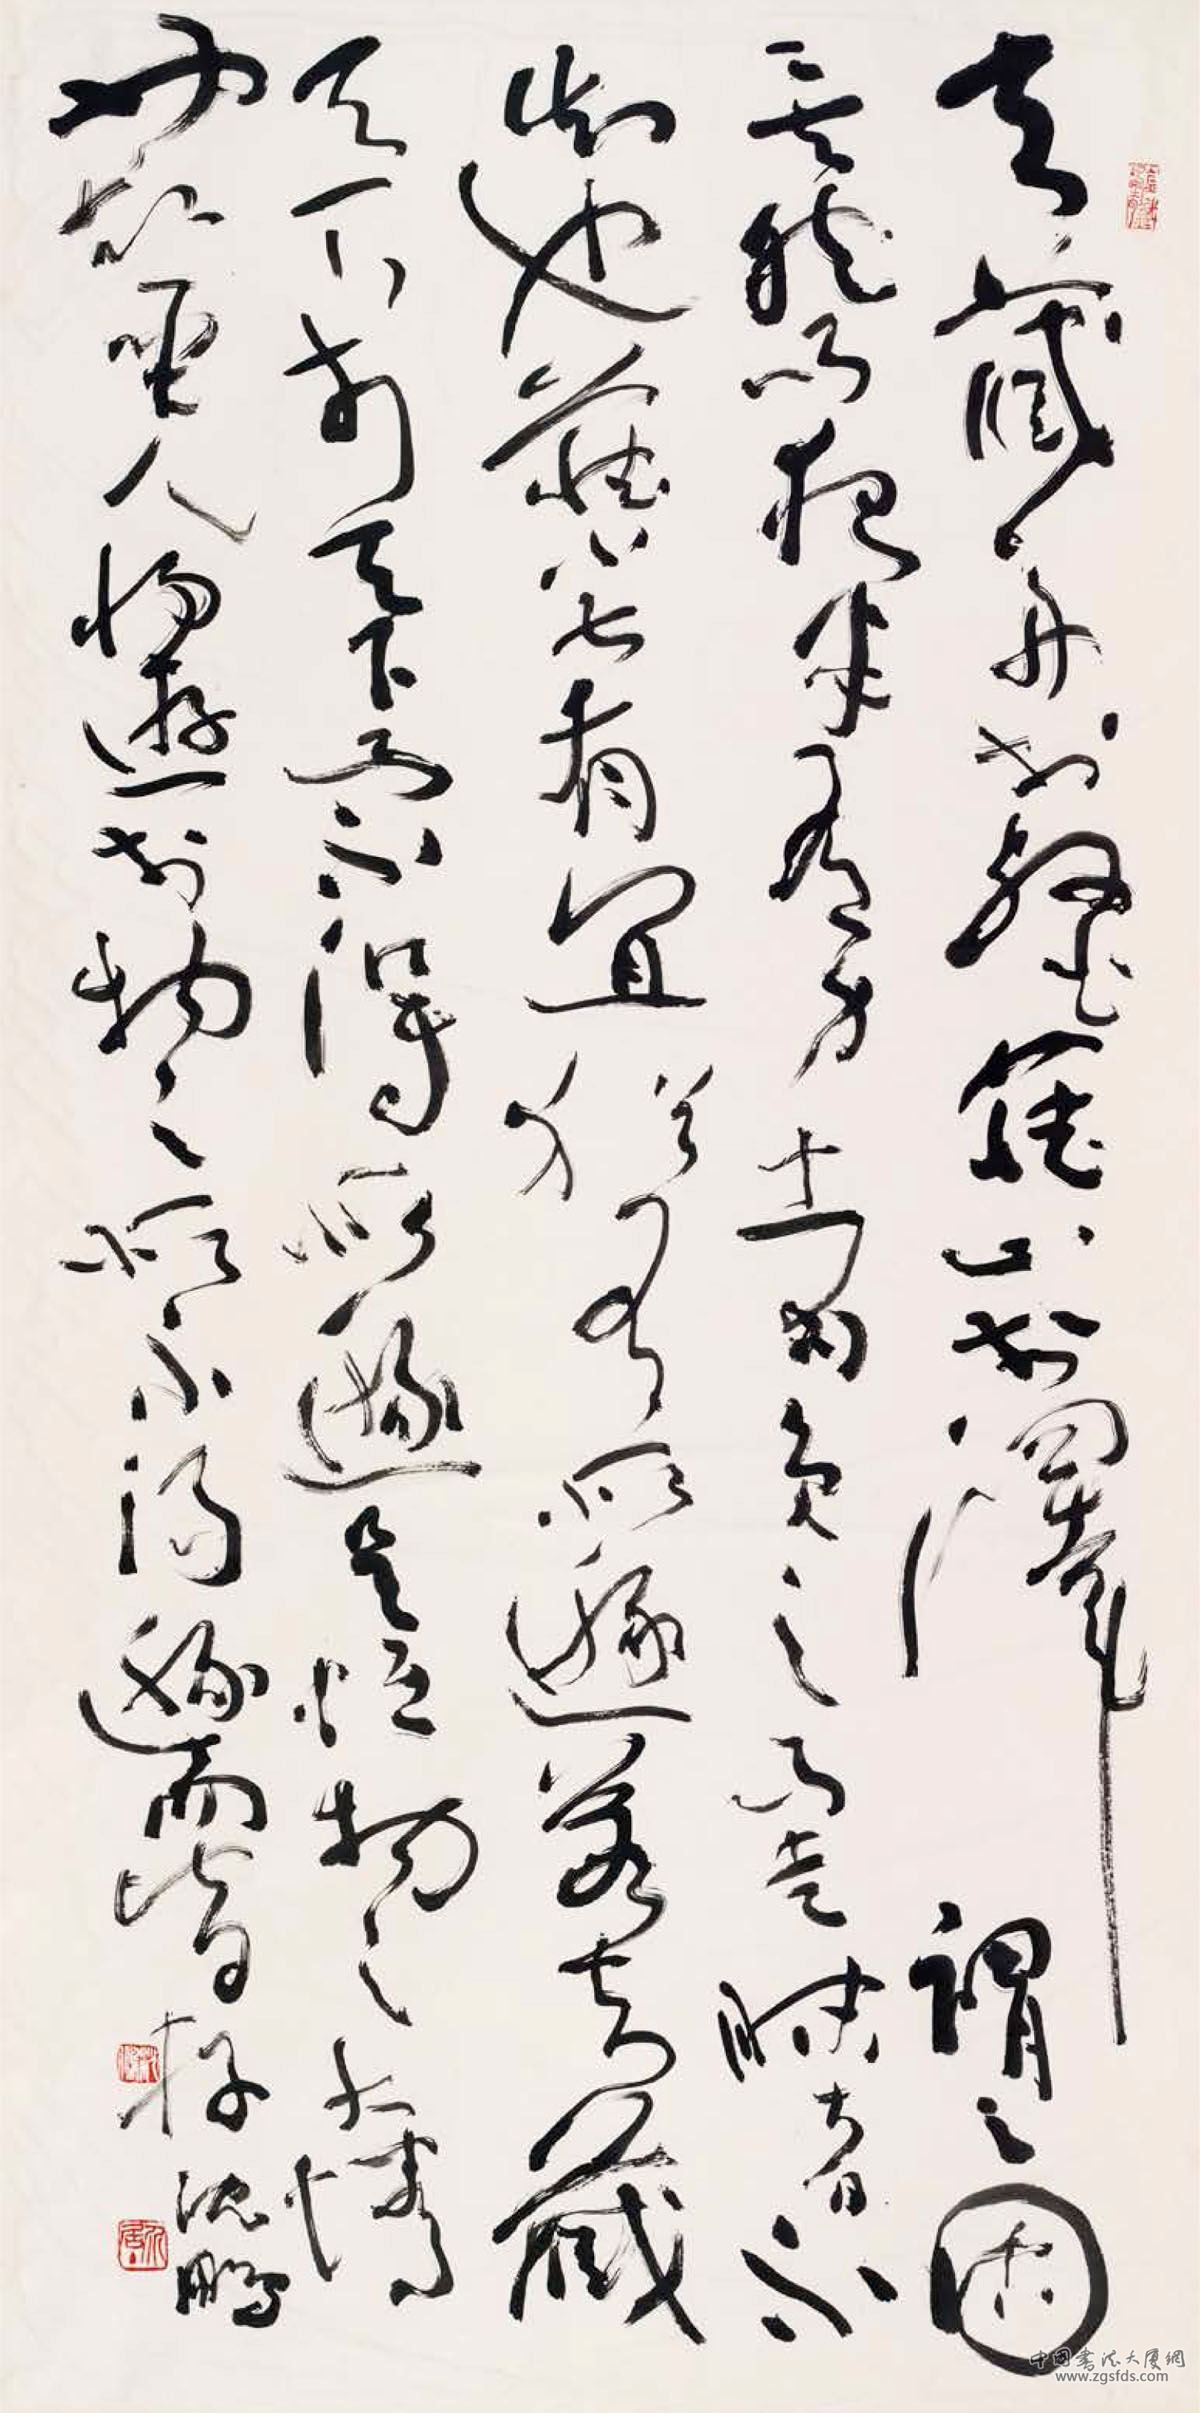 夫藏舟於壑藏山於澤謂之固
矣然而夜半有力者負之而走昧者不
知也藏小大有宜猶有所遯若夫藏
天下於天下而不得所遯是恒物之大情
也故聖人將遊於物之所不得遯而皆存
沈鵬
中国书法大厦網
www.zgsfds.com